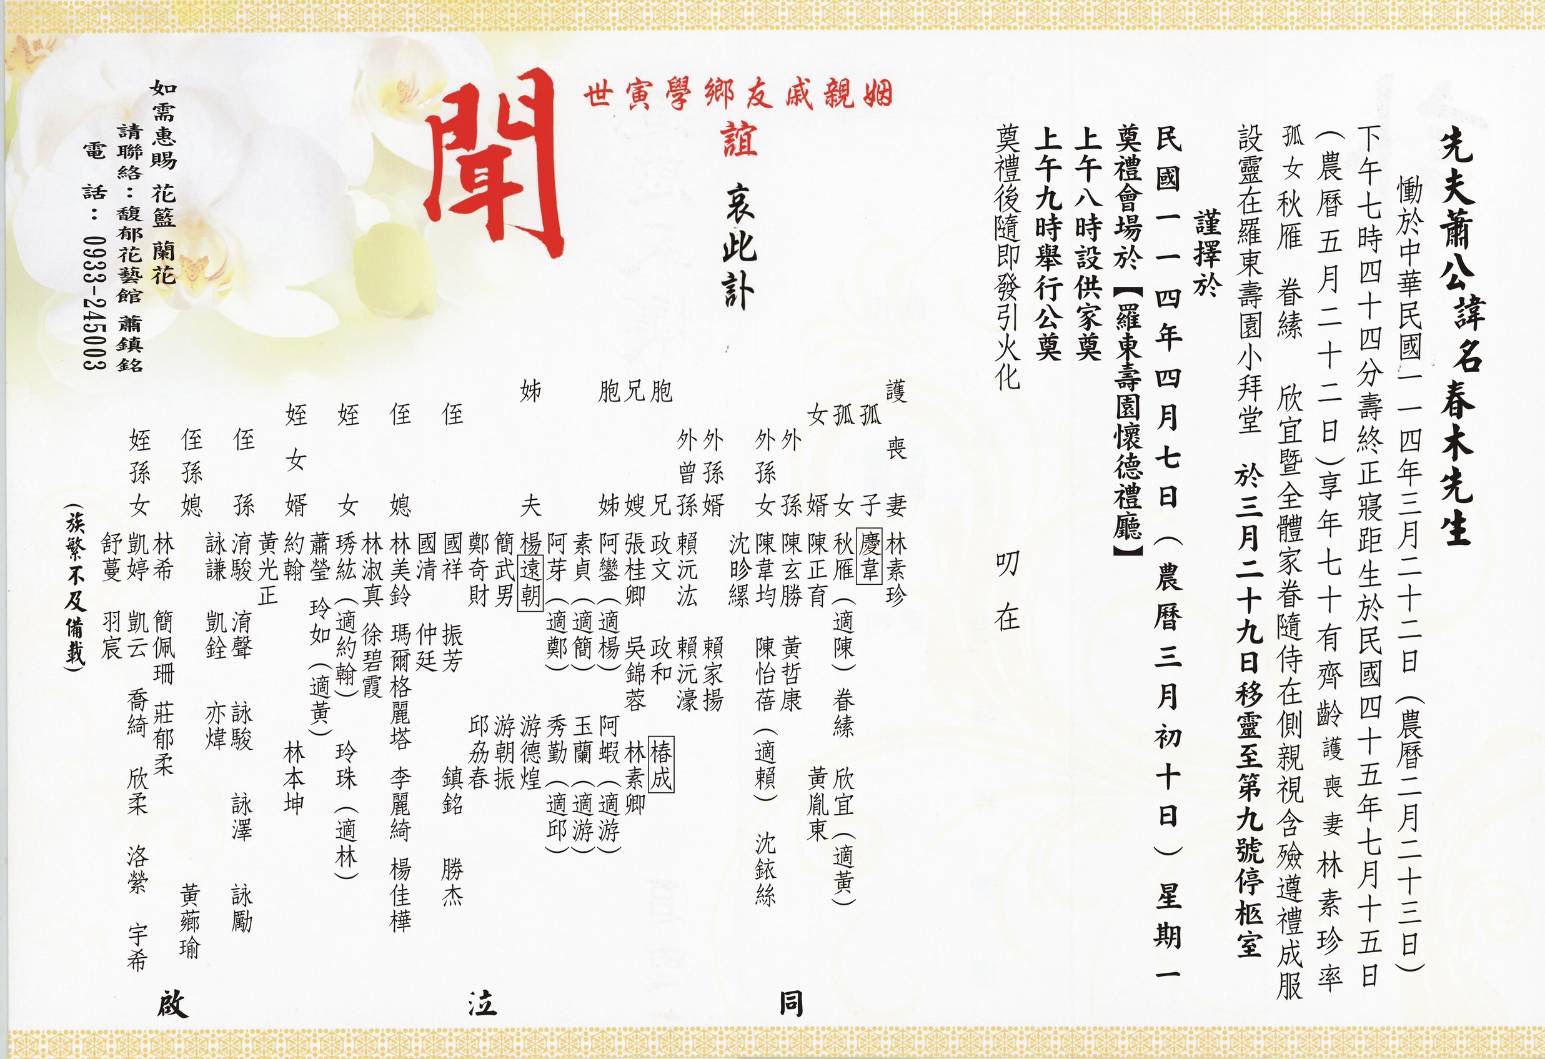 先夫蕭公諱名春木先生
慟於中華民國一一四年三月二十二日(農曆二月二十三日)
下午七時四十四分壽終正寢距生於民國四十五年七月十五日
(農曆五月二十二日)享年七十有齊齡護喪妻林素珍率
孤女秋雁 眷縤 欣宜暨全體家眷隨侍在側親視含殮遵禮成服
設靈在羅東壽園小拜堂 於三月二十九日移靈至第九號停柩室
謹擇於
民國一一四年四月七日(農曆三月初十日)星期一
奠禮會場於【羅東壽園懷德禮廳】
上午八時設供家奠
上午九時舉行公奠
奠禮後隨即發引火化
叨在
姻親戚友鄉學寅世
誼 哀此訃
聞
護喪妻 林素珍
孤子 慶韋
孤女 秋雁(適陳) 眷縤 欣宜(適黃)
女婿 陳正育 黃胤東
外孫 陳玄勝 黃哲康
外孫女 陳韋均 陳怡蓓(適賴) 沈銥絲
沈昣縲
外孫婿 賴家揚
外曾孫 賴沅汯 賴沅濠
胞兄 政文 政和 椿成
兄嫂 張桂卿 吳錦蓉 林素卿
胞姊 阿鑾(適楊) 阿蝦(適游)
素貞(適簡) 玉蘭(適游)
阿芽(適鄭) 秀勤(適邱)
姊夫 楊遠朝 游德煌
簡武男 游朝振
鄭奇財 邱劦春
侄 國祥 振芳 鎮銘 勝杰
國清 仲廷
侄媳 林美鈴 瑪爾格麗塔 李麗綺 楊佳樺
林淑真 徐碧霞
姪女 琇紘(適約翰) 玲珠(適林)
蕭瑩 玲如(適黃)
姪女婿 約翰 林本坤
黃光正
侄孫 淯駿 淯聲 詠駿 詠澤 詠勵
詠謙 凱銓 亦煒
侄孫媳 黃薌瑜
林希 簡佩珊 莊郁柔
姪孫女 凱婷 凱云 喬綺 欣柔 洛縈 宇希
舒蔓 羽宸
(族繁不及備載)
同泣啟
如需惠賜 花籃 蘭花
請聯絡:馥郁花藝館 蕭鎮銘
電話:0933-245003